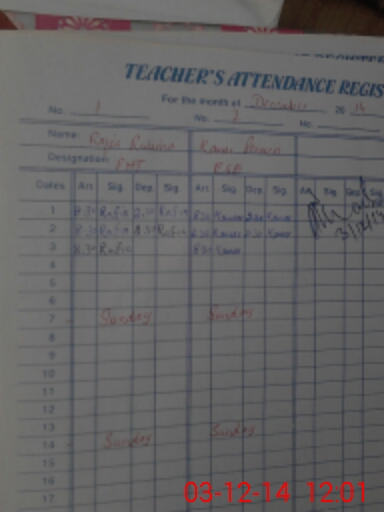 TEACHER'S ATTENDANCE REGIS
For the month of December 20 14
No. 1 No. 2 No.
Name:
Designation: PHT ESE
Dates Arr. Sig. Dep. Sig. Arr. Sig. Dep. Sig. Arr. Sig. Dep. Sig.
1 8.30 Rafia 2.30 Rafia 8.30 Kawar 2.30 Kawar
2 8.30 Rafia 2.30 Rafia 8.30 Kawar 2.30 Kawar 3/12/14
3 8.30 Rafia 8.30 Kawar
4
5
6
7 Sunday Sunday
8
9
10
11
12
13
14 Sunday Sunday
15
16
17
03-12-14 12:01